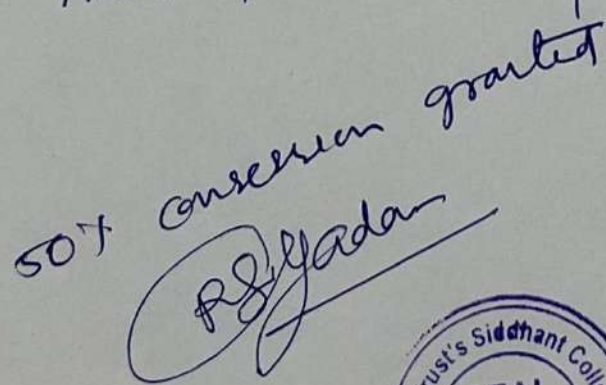 50% consession granted
RS Yadav
ust's Siddhant Col